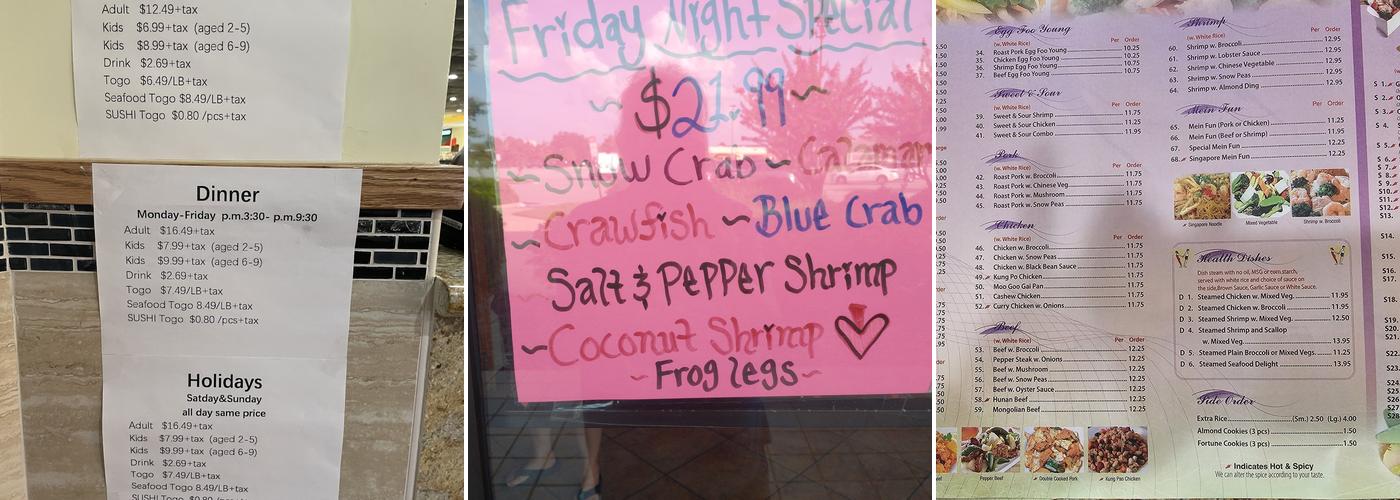 Adult $12.49+tax
Kids $6.99+tax (aged 2-5)
Kids $8.99+tax (aged 6-9)
Drink $2.69+tax
Togo $6.49/LB+tax
Seafood Togo $8.49/LB+tax
SUSHI Togo $0.80 /pcs+tax
Dinner
Monday-Friday p.m.3:30- p.m.9:30
Adult $16.49+tax
Kids $7.99+tax (aged 2-5)
Kids $9.99+tax (aged 6-9)
Drink $2.69+tax
Togo $7.49/LB+tax
Seafood Togo 8.49/LB+tax
SUSHI Togo $0.80 /pcs+tax
Holidays
Satday&Sunday
all day same price
Adult $16.49+tax
Kids $7.99+tax (aged 2-5)
Kids $9.99+tax (aged 6-9)
Drink $2.69+tax
Togo $7.49/LB+tax
Seafood Togo 8.49/LB+tax
SUSHI Togo $0.80 /pcs+tax
Friday Night Special
~ $21.99 ~
~ Snow Crab ~ Calamari
~ Crawfish ~ Blue Crab
Salt & Pepper Shrimp
~ Coconut Shrimp
~ Frog legs ~
Egg Foo Young
(w. White Rice) Per Order
34. Roast Pork Egg Foo Young 10.25
35. Chicken Egg Foo Young 10.25
36. Shrimp Egg Foo Young 10.75
37. Beef Egg Foo Young 10.75
Sweet & Sour
(w. White Rice) Per Order
39. Sweet & Sour Shrimp 11.75
40. Sweet & Sour Chicken 11.75
41. Sweet & Sour Combo 11.95
Pork
(w. White Rice) Per Order
42. Roast Pork w. Broccoli 11.75
43. Roast Pork w. Chinese Veg. 11.75
44. Roast Pork w. Mushroom 11.75
45. Roast Pork w. Snow Peas 11.75
Chicken
(w. White Rice) Per Order
46. Chicken w. Broccoli 11.75
47. Chicken w. Snow Peas 11.75
48. Chicken w. Black Bean Sauce 11.75
49. Kung Po Chicken 11.75
50. Moo Goo Gai Pan 11.75
51. Cashew Chicken 11.75
52. Curry Chicken w. Onions 11.75
Beef
(w. White Rice) Per Order
53. Beef w. Broccoli 12.25
54. Pepper Steak w. Onions 12.25
55. Beef w. Mushroom 12.25
56. Beef w. Snow Peas 12.25
57. Beef w. Oyster Sauce 12.25
58. Hunan Beef 12.25
59. Mongolian Beef 12.25
Pepper Beef
Double Cooked Pork
Kung Pao Chicken
Shrimp
(w. White Rice) Per Order
60. Shrimp w. Broccoli 12.95
61. Shrimp w. Lobster Sauce 12.95
62. Shrimp w. Chinese Vegetable 12.95
63. Shrimp w. Snow Peas 12.95
64. Shrimp w. Almond Ding 12.95
Mein Fun
Per Order
65. Mein Fun (Pork or Chicken) 11.25
66. Mein Fun (Beef or Shrimp) 11.95
67. Special Mein Fun 12.25
68. Singapore Mein Fun 12.25
Singapore Noodle
Mixed Vegetable
Shrimp w. Broccoli
Health Dishes
Dish steam with no oil, MSG or corn starch,
served with white rice and choice of sauce on
the side,Brown Sauce, Garlic Sauce or White Sauce.
D 1. Steamed Chicken w. Mixed Veg. 11.95
D 2. Steamed Chicken w. Broccoli 11.95
D 3. Steamed Shrimp w. Mixed Veg. 12.50
D 4. Steamed Shrimp and Scallop
w. Mixed Veg. 13.95
D 5. Steamed Plain Broccoli or Mixed Vegs. 11.25
D 6. Steamed Seafood Delight 13.95
Side Order
Extra Rice (Sm.) 2.50 (Lg.) 4.00
Almond Cookies (3 pcs) 1.50
Fortune Cookies (3 pcs) 1.50
Indicates Hot & Spicy
We can alter the spice according to your taste.